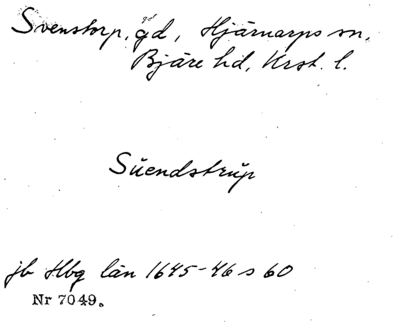 Svenstorp, gd, Hjärnarps sn,
Bjäre hd, Krst. l.
Süendstrüp
jb Hbg län 1645-46 s 60
Nr 7049.